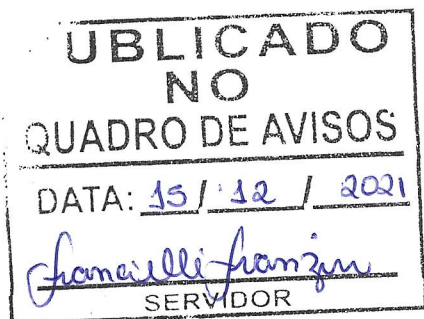 UBLICADO
NO
QUADRO DE AVISOS
DATA: 15 / 12 / 2021
Francielli Franzin
SERVIDOR